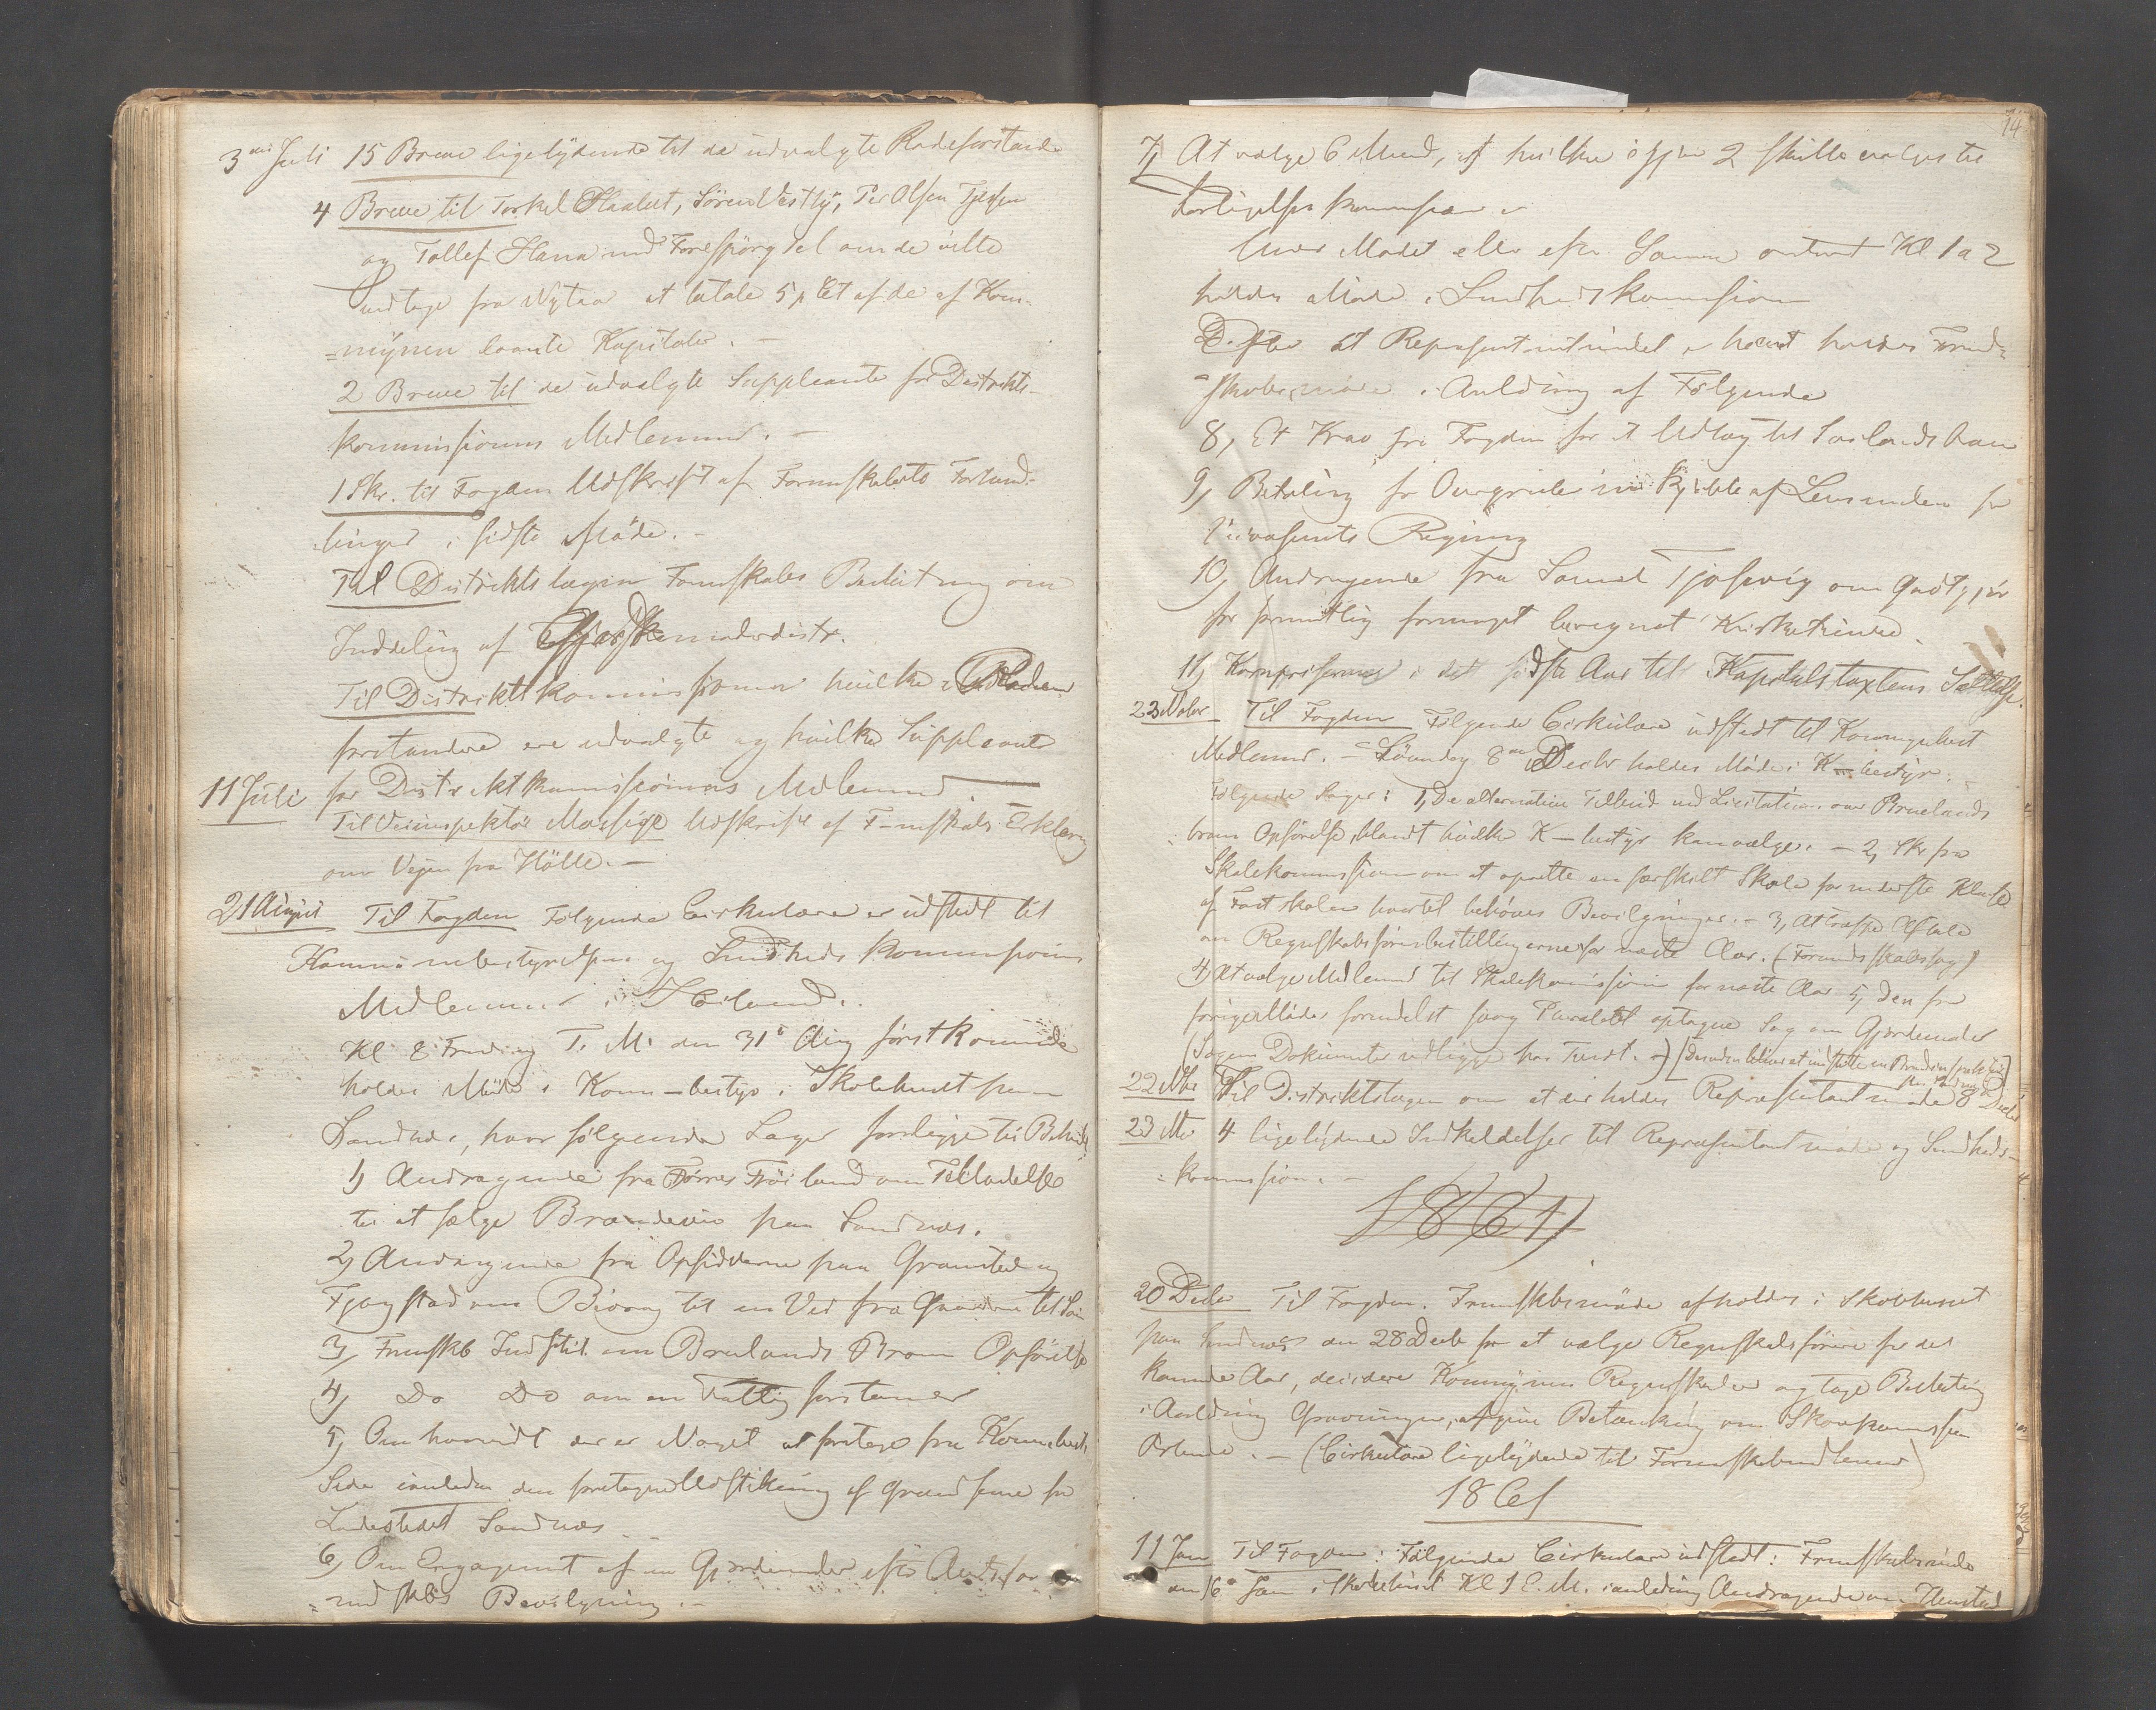 3die Juli 15 Breve ligelydende til de udvalgte Rodeforstandere
4 Breve til Torkel Skaalest, Sören Vestly, Per Olsen Tjelsen
og Tollef Hana med Forespörgsel om de vilde
fra Nytaar at betale 5 pCt af de af Kom-
=mynen laante Kapitaler. -
2 Breve til de udvalgte Suppleanter for Distrikts-
kommissionens Medlemmer. -
1 Skr. til Fogden Udskrift af Formskabets Forhand-
linger i sidste Möde. -
Til Distriktslægen Formskabets Beslutning om
Inddeling af Gjordemoderdistr.
Til Distriktskommissionen hvilke
forstandere ere udvalgte og hvilke Suppleanter
11 Juli for Distriktskommissionens Medlemmer
Til Veiinspektör Massige Udskrift af F-mskabets Erklæring
om Vejen fra Hölle. -
21 August Til Fogden Fölgende Cirkulære er udstedt til
Kommunebestyrelsens og Sundheds kommissionens
Medlemmer i Höiland.
Kl 8 Fredag F. M. den 31te Aug förstkommende
holdes Möde i Komm-bestyr. i Skolehuset paa
Sandnæs, hvor fölgende Sager foreligge til Behandl.
1) Andragende fra Törres Fröiland om Tilladelse
til at sælge Brændeviin paa Sandnæs.
2) Andragende fra Opsidderne paa Gramstad og
Fjogstad om Bidrag til en Vei fra Gaardene til
3) Frmskb Indstil. om Bruelands Broens Opförelse
4) Do Do om en Fattigforstander
5) Om hvorvidt der er Noget at foretage fra Kommunebest.
Side i anledn den foretagne Udstikning af Grændserne for
Ladestedet Sandnæs -
6) Om Engagement af en Gjordemoder efter Amtsfor-
=mandskabets Bevilgning. -
74
7) At vælge 6 Mænd, af hvilke igjen 2 skulle vælges til
Forligelses kommissærer
Under Mödet eller efter Samme omtrent Kl 1 a 2
holdes Möde i Sundhedskommissionen
Efter at Repræsentantmödet er hævet holdes Formd-
=skabsmöde i Anledning af Fölgende
8) Et Krav fra Fogden for et Udlæg til Sælands Aaen
9) Betaling for af Lensmanden for
Regning
10) Andragende fra Samuel Tjosevig om Godtgjör
for formentlig formeget beregnet
11) Kornpriserne i det sidste Aar til Kapitelstaxtens Sættelse.
23 Nvbr Til Fogden Fölgende Cirkulære udstedt til Kommynebest
Medlemmer. - Löverdag 8de Decbr holdes Möde i K-bestyr. -
Fölgende Sager: 1) De alternative Tilbud ved Licitation over Bruelands
broens Opförelse, blandt hvilke K-bestyr kan vælge. - 2) Skr fra
Skolekommissionen om at oprette en særskilt Skole for nederste Klasse
af Fastskolen hvortil behöves Bevilgninger. - 3) At træffe Aftale
om Regnskabsförerbestillingerne for næste Aar. (Formandsskabssag)
4) At vælge Medlemmer til Skolekommissionen for næste Aar 5) Den fra
forige Möde optagne Sag om Gjordemoder
(Sagens Dokumenter vedligge hos Tuedt. -)
22 Nbr Til Distriktslægen om at der holdes Repræsentantmöde 8 Decbr
23 Nbr 4 ligelydende Indkaldelser til Repræsentantmöde og Sundheds-
=kommission. -
1861)
20 Decbr Til Fogden. Frmskbsmöde afholdes i Skolehuset
paa Sandnæs den 28 Decbr for at vælge Regnskabsförere for det
kommende Aar, decidere Kommynens Regnskaber og tage Beslutning
i Anledning Gravningen, afgive Betænkning om Skovkommissionens
Arbeide. - (Cirkulære ligelydende til Formandskabsmedlemmer)
1861
11 Jan Til Fogden: Fölgende Cirkulære udstedt: Frmskabsmöde
den 16de Jan i Skolehuset Kl 1 E. M. i anledning Andragende om